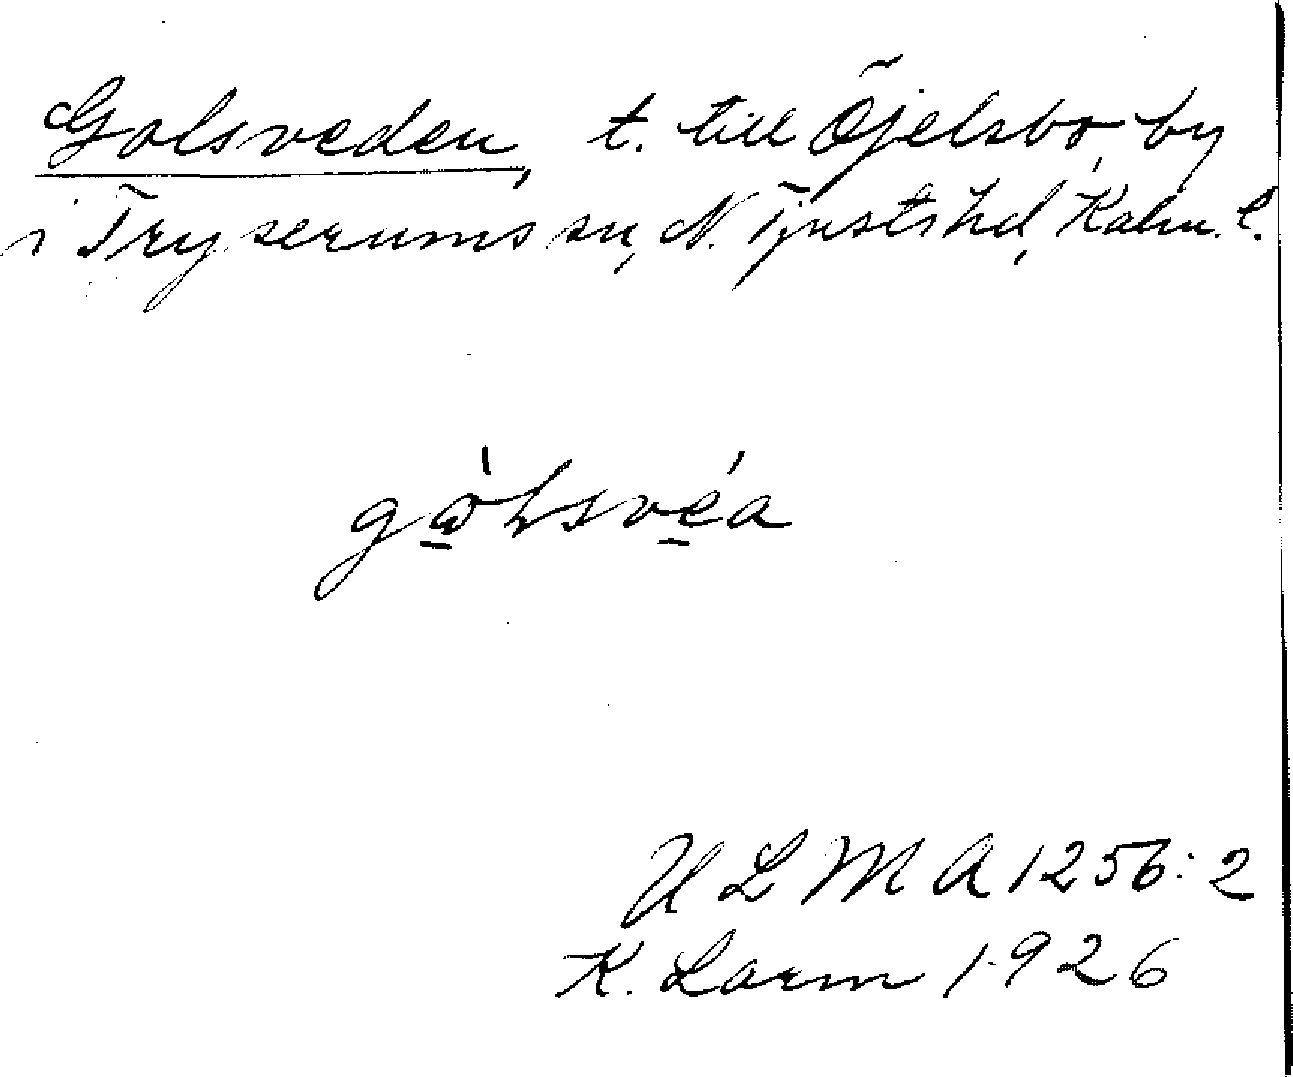 Golsveden, t. till Öjelsbo by
i Tryserums sn, N. Tjusts hd, Kalm. l.
gὼḷsvéa
U L M A 1256:2
K. Larm 1926